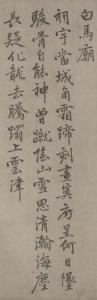 白馬廟
祠宇當城角霜蹄刻畫真房星何日墜
駿骨自能神曾蹴陰山雪思清瀚海塵
長疑化龍去騰上雲津